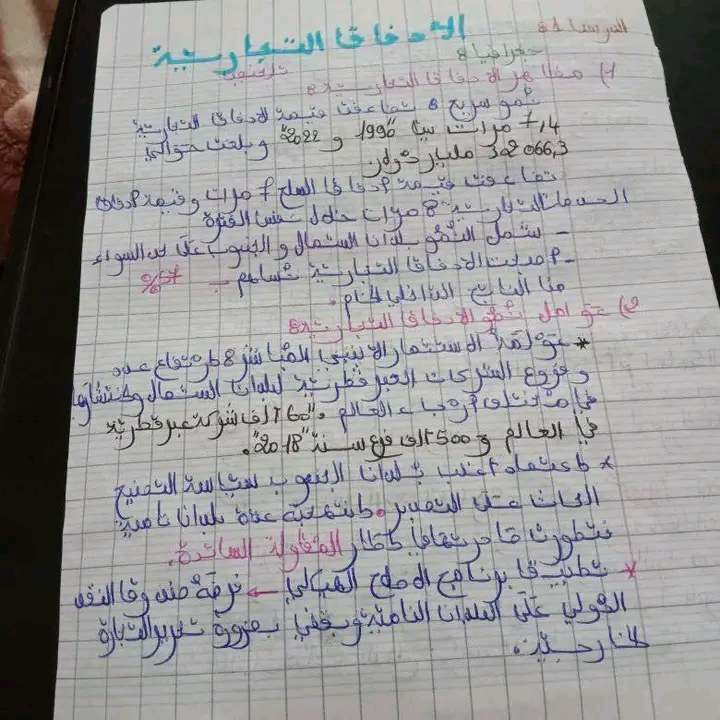 الدرس 1:
الدفاقا التجارية
جغرافيا:
1) مظاهر الدفاقا التجارية:
نمو سريع: تضاعفت قيمة الدفاقا التجارية
7,4 مرات بين "1990 و 2022" وبلغت حوالي
32066,3 مليار دولار.
تضاعفت قيمة دفاقا السلع 7 مرات وقيمة دفاقا
الخدمات التجارية 8 مرات خلال نفس الفترة
- شمل النمو بلدان الشمال والجنوب على حد السواء
- أصبحت الدفاقا التجارية تساهم ب 57%
من الناتج الداخلي الخام.
2) عوامل نمو الدفاقا التجارية:
* عولمة الاستثمار الأجنبي المباشر: ارتفاع عدد
وفروع الشركات العبر قطرية لبلدان الشمال وانتشارها
في مختلف أرجاء العالم "60 ألف شركة عبر قطرية
في العالم و 500 ألف فرع سنة "2018".
* اعتماد أغلب بلدان الجنوب سياسة التصنيع
الحاث على التصدير. انتهجته عدة بلدان نامية
فتطورت صادراتها في إطار المقاولة الساندة.
* تطبيق برنامج الإصلاح الهيكلي ← فرضه صندوق النقد
الدولي على البلدان النامية ويقضي بضرورة تحرير التجارة
الخارجية.